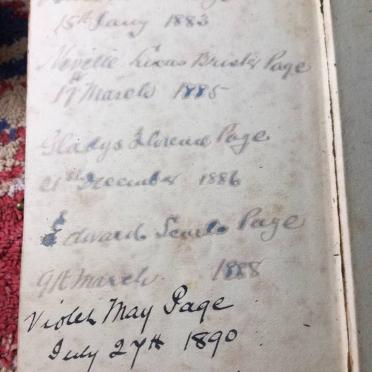 Page
15th Jany 1883
Neville Lucas Page
17th March 1885
Gladys Florence Page
21st December 1886
Edward Page
9th March 1888
Violet May Page
July 27th 1890